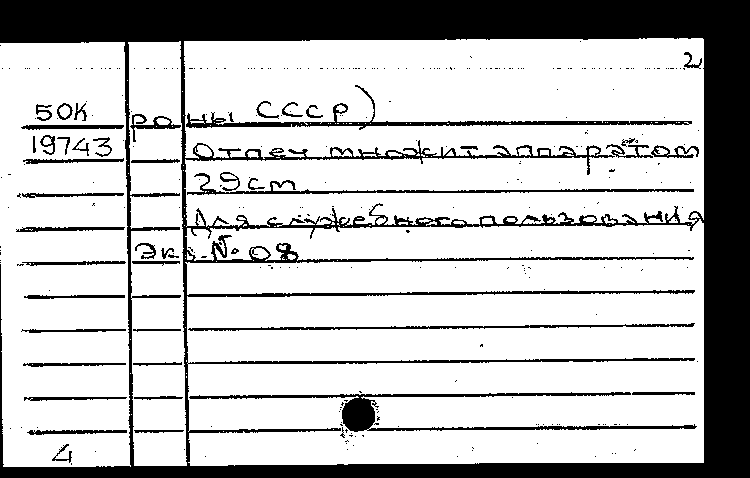 2
50К раны СССР)
19743 Отпеч множит аппаратом
29 cm
Для служебного пользования
Экз. № 08
4